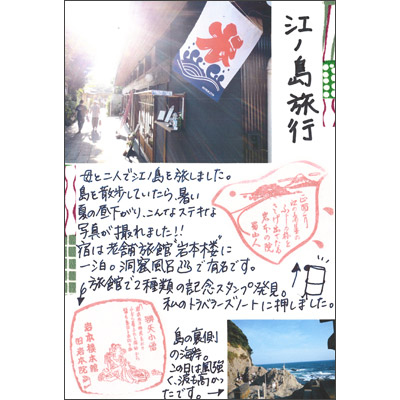 氷
江ノ島旅行
母と二人で江ノ島を旅しました。
島を散歩していたら、暑い
夏の昼下がり、こんなステキな
写真が撮れました!!
宿は老舗旅館"岩本楼"に
一泊。洞窟風呂で有名です。
旅館で2種類の記念スタンプ発見。
私のトラベラーズノートに押しました。
弁天小僧
岩本楼本館
旧岩本院
島の裏側
の海岸。
この日は風強
く、波も高かっ
たです。→